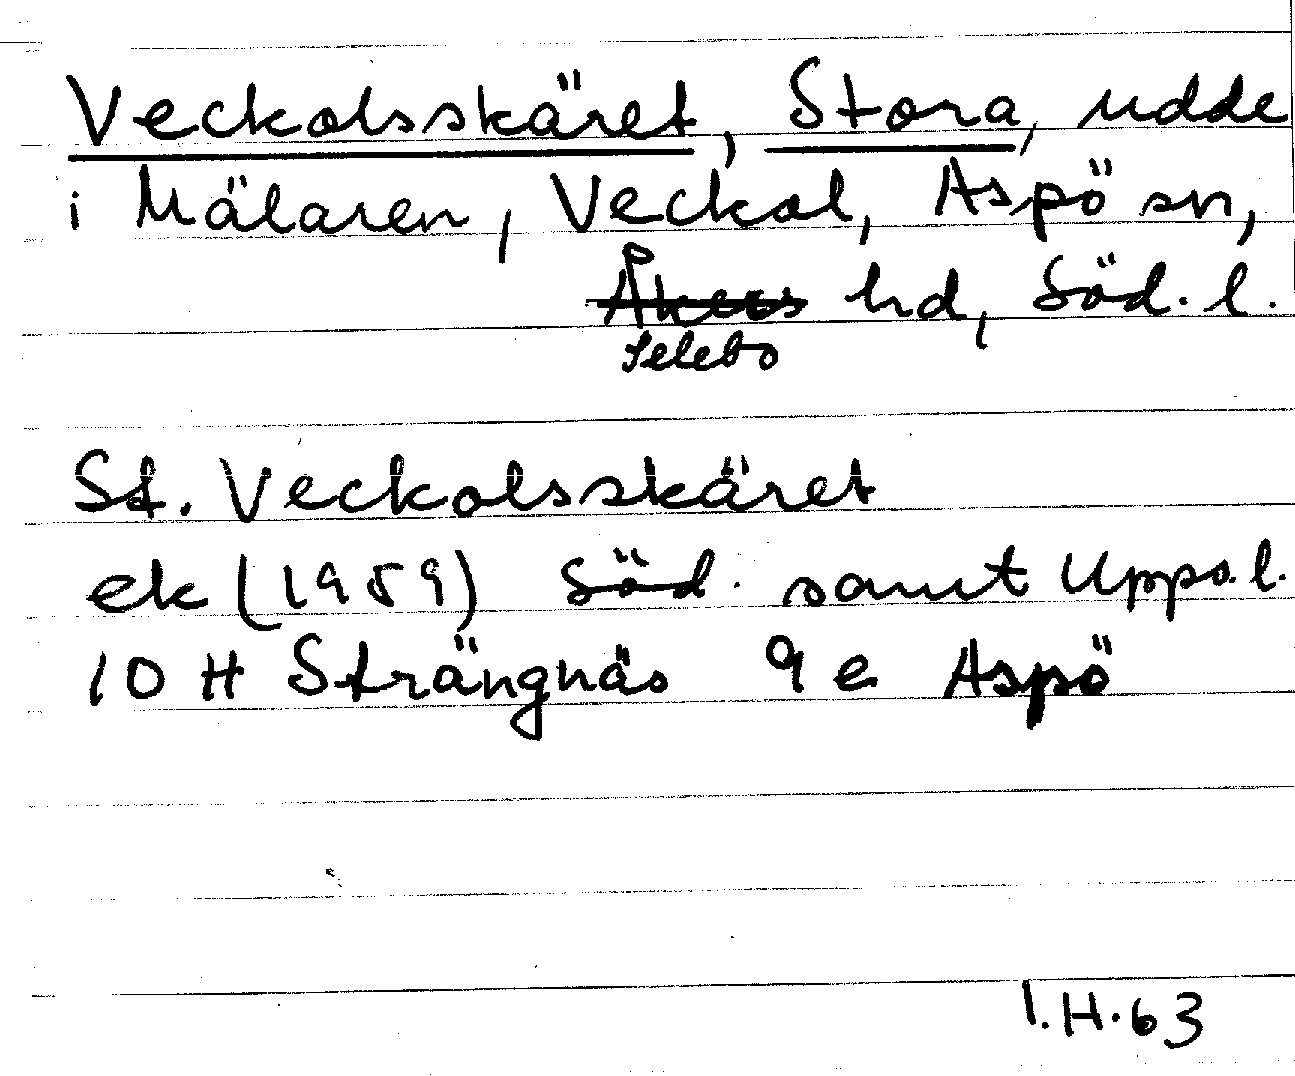 Veckolsskäret, Stora, udde
i Mälaren, Veckol, Aspö sn,
Åkers hd, Söd. l.
Selebo
St. Veckolsskäret
ek (1959) Söd. samt Upps. l.
10 H Strängnäs 9 e Aspö
I.H. 63